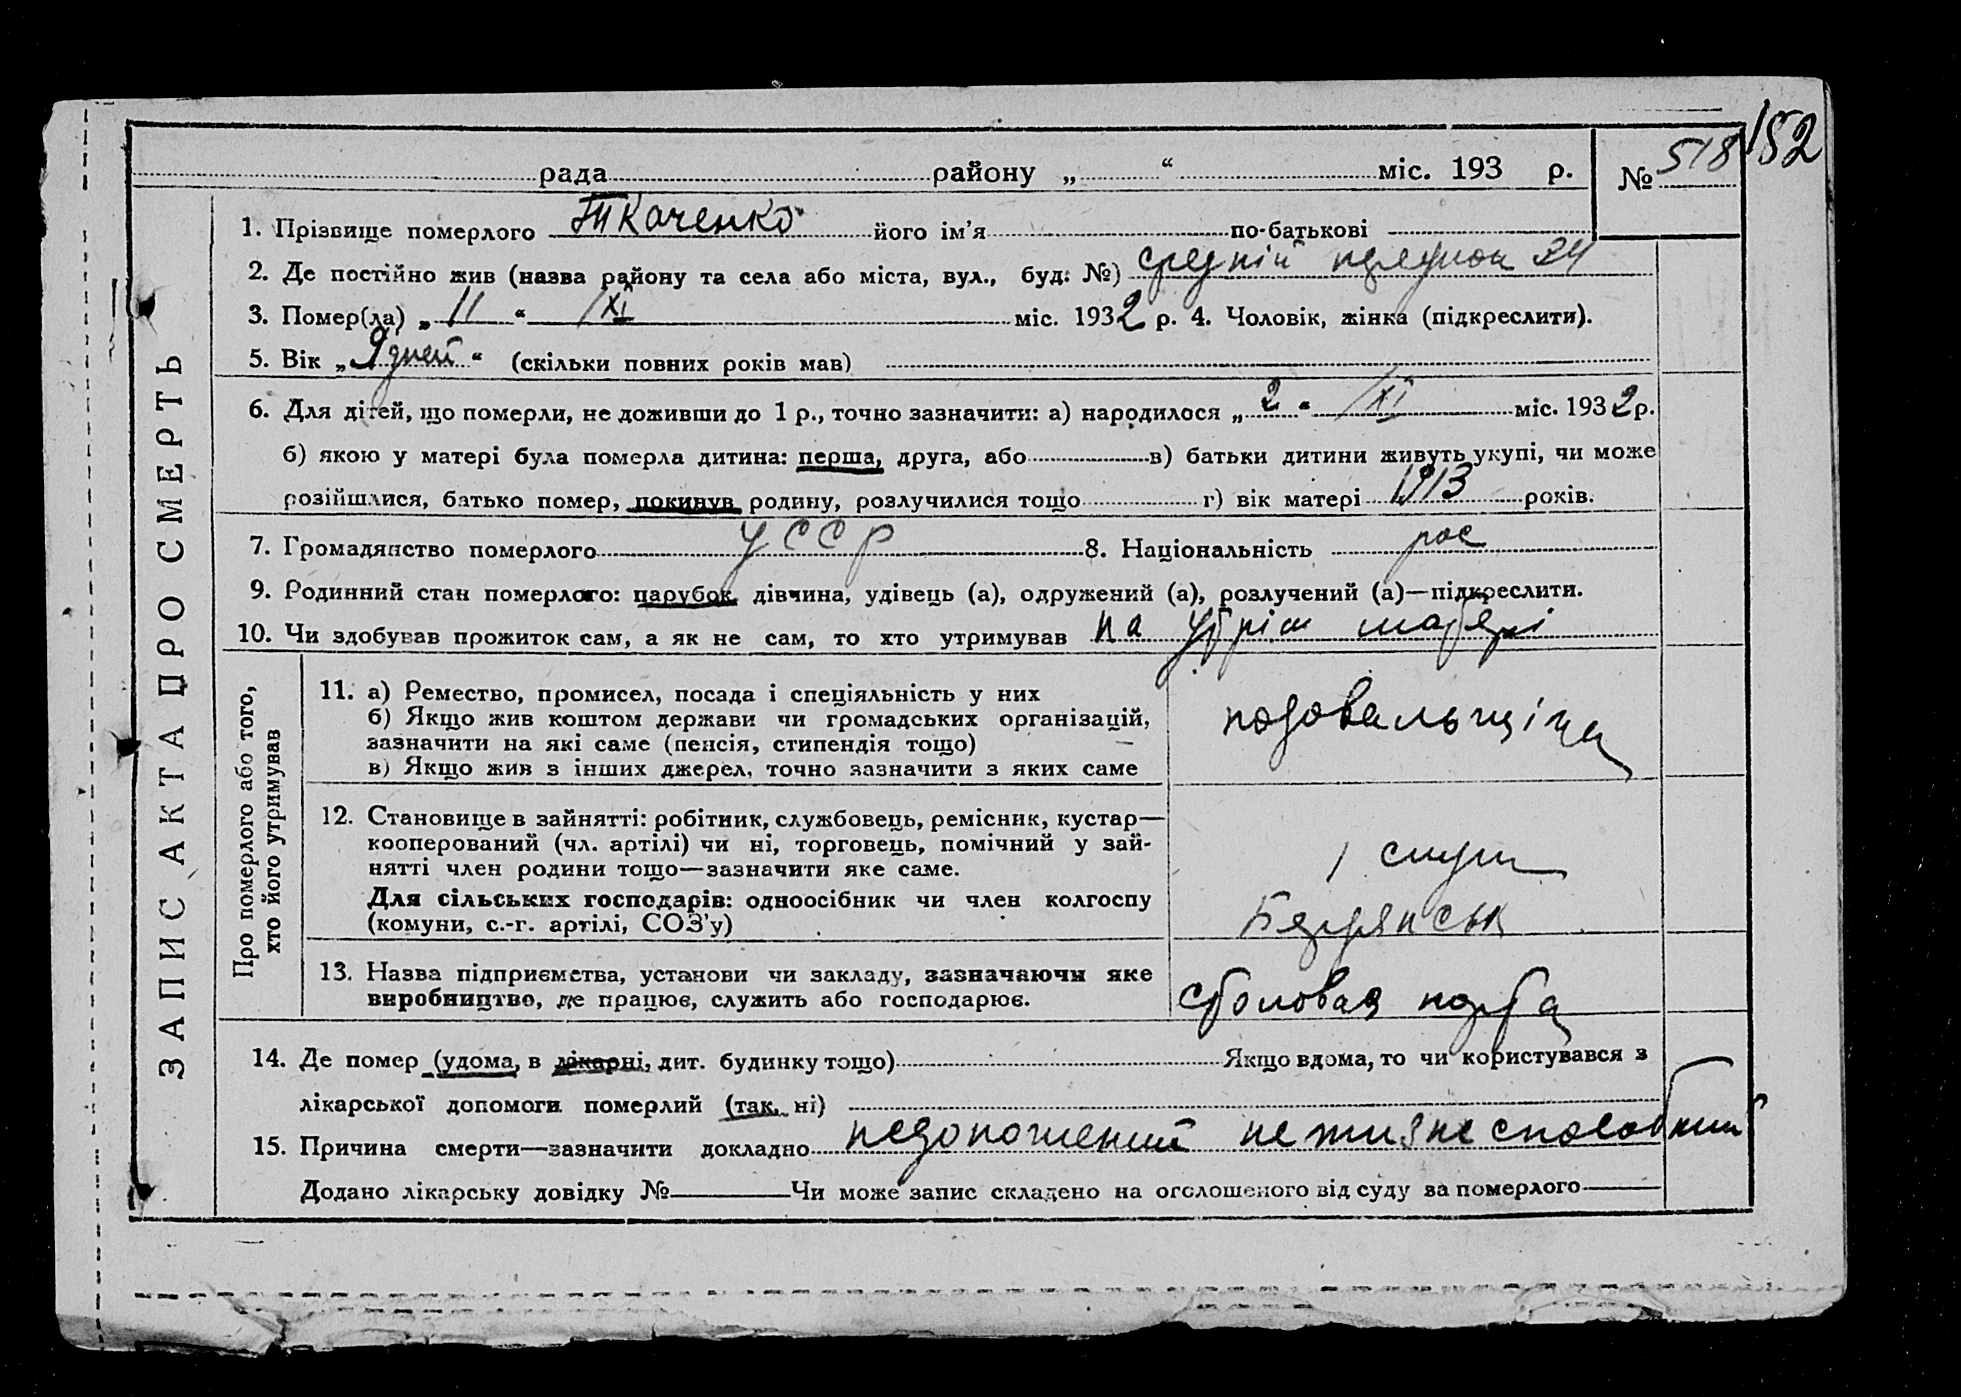 152
рада района „ “ міс. 193 р. № 518
1. Прізвище померлого Ткаченко його ім'я по-батькові
2. Де постійно жив (назва району та села або міста, вул., буд. №) средній 34
3. Помер(ла) „ 11 “ /XI міс. 1932 р. 4. Чоловік, жінка (підкреслити).
5. Вік „ 9 дней “ (скільки повних років мав)
6. Для дітей, що померли, не доживши до 1 р., точно зазначити: а) народилося „ 2 “ /XI міс. 1932 р.
б) якою у матері була померла дитина: перша, друга, або в) батьки дитини живуть укупі, чи може
розійшлися, батько помер, покинув родину, розлучилися тощо г) вік матері 1913 років.
7. Громадянство померлого УССР 8. Національність рос
9. Родинний стан померлого: парубок, дівчина, удівець (а), одружений (а), розлучений (а)—підкреслити.
10. Чи здобував прожиток сам, а як не сам, то хто утримував на утрім матері
ЗАПИС АКТА ПРО СМЕРТЬ
Про померлого або того,
хто його утримував
11. а) Ремество, промисел, посада і спеціяльність у них
б) Якщо жив коштом держави чи громадських організацій,
зазначити на які саме (пенсія, стипендія тощо)
в) Якщо жив з інших джерел, точно зазначити з яких саме
подовальщіца
12. Становище в зайнятті: робітник, службовець, ремісник, кустар—
кооперований (чл. артілі) чи ні, торговець, помічний у зай-
нятті член родини тощо—зазначити яке саме.
Для сільських господарів: одноосібник чи член колгоспу
(комуни, с.-г. артілі, СОЗ'у)
Бердянськ
13. Назва підприємства, установи чи закладу, зазначаючи яке
виробництво, де працює, служить або господарює.
столовая порта
14. Де помер (удома, в лікарні, дит. будинку тощо) Якщо вдома, то чи користувався з
лікарської допомоги померлий (так, ні)
15. Причина смерти—зазначити докладно недоношений не жизне способний
Додано лікарську довідку № Чи може запис складено на оголошеного від суду за померлого